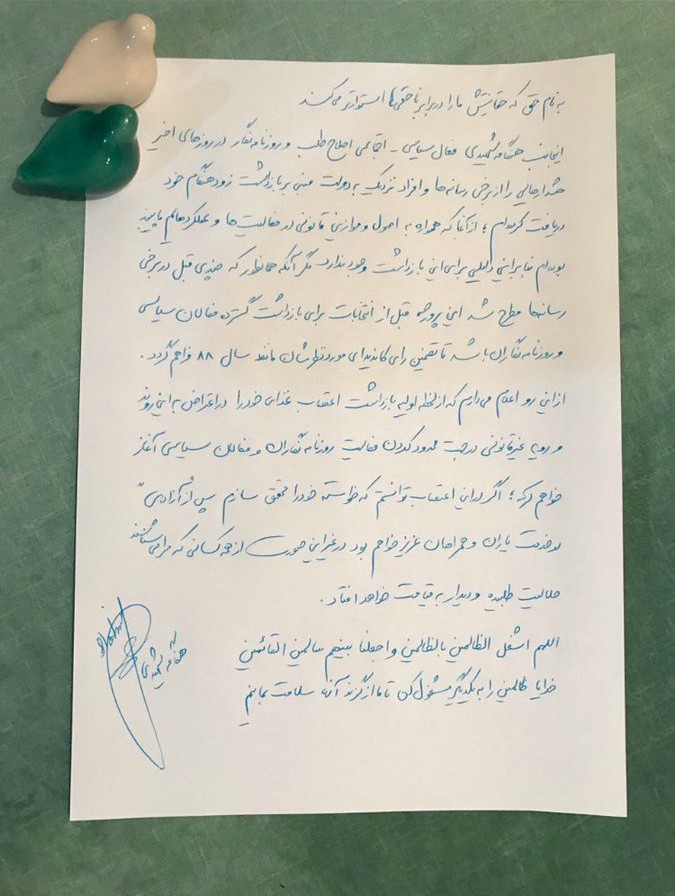 به نام حق که حقانیتش ما را در برابر ناحقی‌ها استوارتر می‌کند
اینجانب هنگامه شهیدی فعال سیاسی - اجتماعی اصلاح طلب و روزنامه نگار در روزهای اخیر
هشدارهایی را از برخی رسانه‌ها و افراد نزدیک به دولت مبنی بر بازداشت زودهنگام خود
دریافت کرده‌ام ؛ از آنجا که همواره به اصول و موازین قانونی در فعالیت‌ها و عملکردهایم پایبند
بوده‌ام بنابراین دلیلی برای این بازداشت وجود ندارد مگر آنکه همانطور که چندی قبل در برخی
رسانه‌ها مطرح شد این پروژه قبل از انتخابات برای بازداشت گسترده فعالان سیاسی
و روزنامه نگاران باشد تا تضمین رای کاندیدای مورد نظرشان مانند سال ۸۸ فراهم گردد .
از این رو اعلام می‌دارم که از لحظه اولیه بازداشت اعتصاب غذای خود را در اعتراض به این روند
و رویه غیرقانونی در جهت محدود کردن فعالیت روزنامه نگاران و فعالان سیاسی آغاز
خواهم کرد ؛ اگر در این اعتصاب توانستم که خواسته خود را محقق سازم پس از "آزادی"
در خدمت یاران و همراهان عزیز خواهم بود در غیر این صورت از همه کسانی که مرا می‌شناسند
حلالیت طلبیده و دیدار به قیامت خواهد افتاد .
اللهم اشغل الظالمین بالظالمین واجعلنا بینهم سالمین الغانمین
خدایا ظالمین را به یکدیگر مشغول کن تا ما از گزند آنها سلامت بمانیم
هنگامه شهیدی